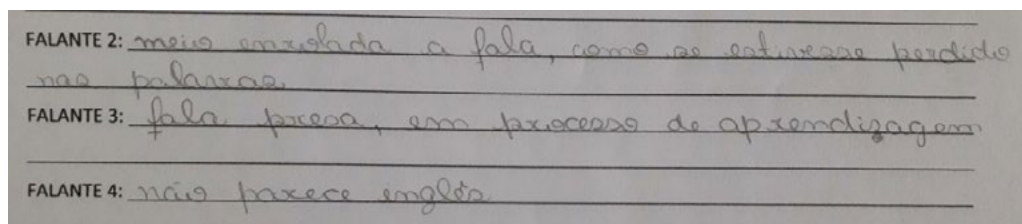 FALANTE 2: meio enrolada a fala, como se estivesse perdido
nas palavras.
FALANTE 3: fala presa, em processo de aprendizagem
FALANTE 4: não parece englês